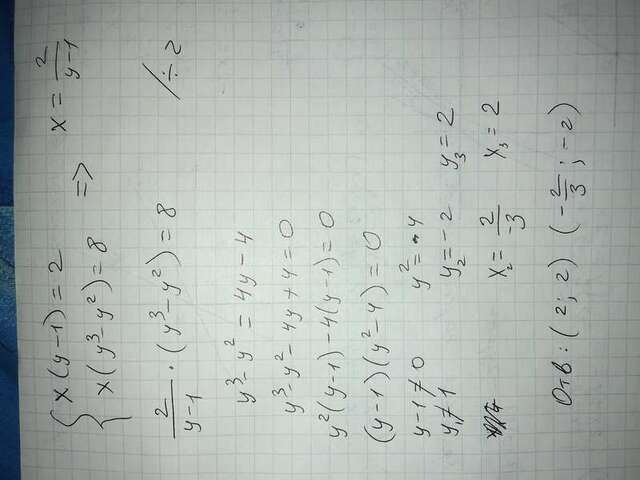 { x(y-1)=2
x(y³-y²)=8 => x = 2/(y-1)
2/(y-1) · (y³-y²)=8 /÷2
y³-y² = 4y-4
y³-y²-4y+4=0
y²(y-1)-4(y-1)=0
(y-1)(y²-4)=0
y-1≠0 y²=4
y₁≠1 y₂=-2 y₃=2
x₂= 2/-3 x₃=2
Отв: (2; 2) (-2/3; -2)